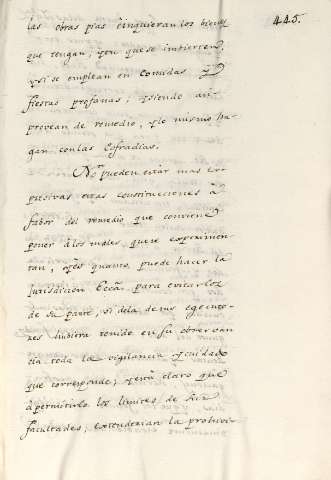 445.
las obras pias è inquieran los bienes
que tengan; y en que se imbierten,
y si se emplean en Comidas y
fiestas profanas; y siendo asi
provean de remedio, y lo mismo ha-
gan con las Cofradias.
No pueden estar mas ex-
presivas estas constituciones à
fabor del remedio que conviene
poner à los males, que se experimen-
tan, y es quanto puede hacer la
Jurisdiccion Ecca. para evitarlos
de su parte, si de la de sus egecuto-
res hubiera tenido en su observan
cia toda la vigilancia y cuidado
que corresponde; y està claro que
à permitirlo los limites de sus
facultades, extenderian la prohivi-